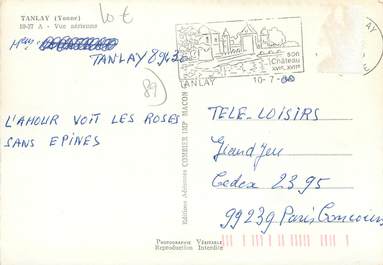 TANLAY (Yonne)
10-27 A - Vue aérienne
10 €
TANLAY 89430
89
L'AMOUR VOIT LES ROSES
SANS EPINES
Editions Aériennes COMBIER IMP MACON
son
Château
XVIe, XVIIe
TANLAY
10-7-
TELE-LOISIRS
Grand Jeu
Cedex 2395
99239 Paris Concours
PHOTOGRAPHIE VÉRITABLE
Reproduction Interdite